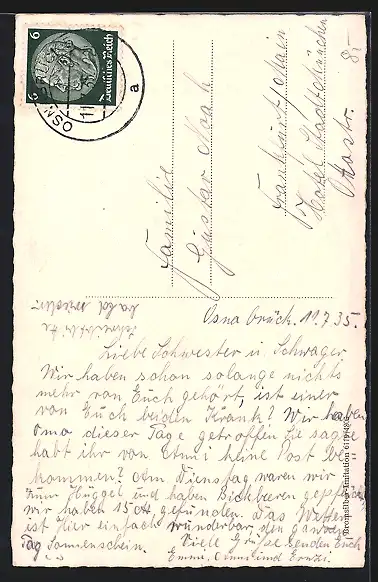 6
6
Deutsches Reich
OSN
11
a
Familie
Gustav Noah
Frankfurt/Main
Hotel Stadt München
8
Ostbrück. 11.7.35.
Liebe Schwester u. Schwager.
Wir haben schon solange nichts
mehr von Euch gehört, ist einer
von Euch beiden Krank? Wir haben
Oma dieser Tage getroffen sie sagte
habt ihr von Anni keine Post be
kommen? Am Dienstag waren wir
zum Hüggel und haben Bickbeeren gepflückt
wir haben 15 gefunden. Das Wetter
ist Hier einfach wunderbar den ganzen
Tag Sonnenschein. Viele Grüße senden Euch
Emmi und
schreibt bitte
bald wieder.
Bromsilber-Imitation